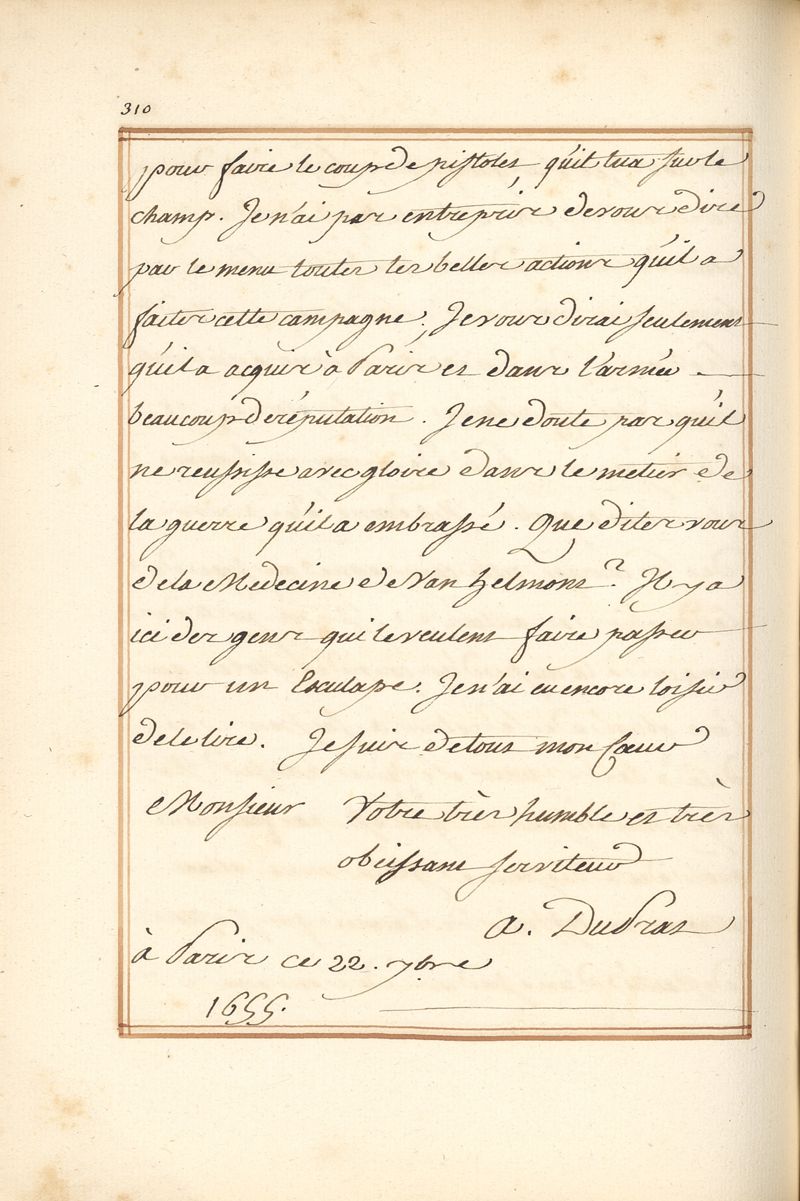 310
pour faire le coup de pistolet, qu'il tua sur le
champ. Je n'ai pas entrepris de vous dire
par le menu toutes les belles actions qu'il a
faites cette campagne; Je vous dirai seulement
qu'il a acquis à Paris et dans l'armée
beaucoup de réputation. Je ne doute pas qu'il
ne reussisse avec gloire dans le metier de
la guerre qu'il a embrassé. Que dites vous
de la Medecine de Van Helmont? Il y a
ici des gens qui le veulent faire passer
pour un Esculape. Je n'ai eu encore loisir
de le lire. Je suis de tout mon Cœur
Monsieur Votre très humble et très
obeissant serviteur
A. DuPrat
à Paris ce 22. 7bre
1655.